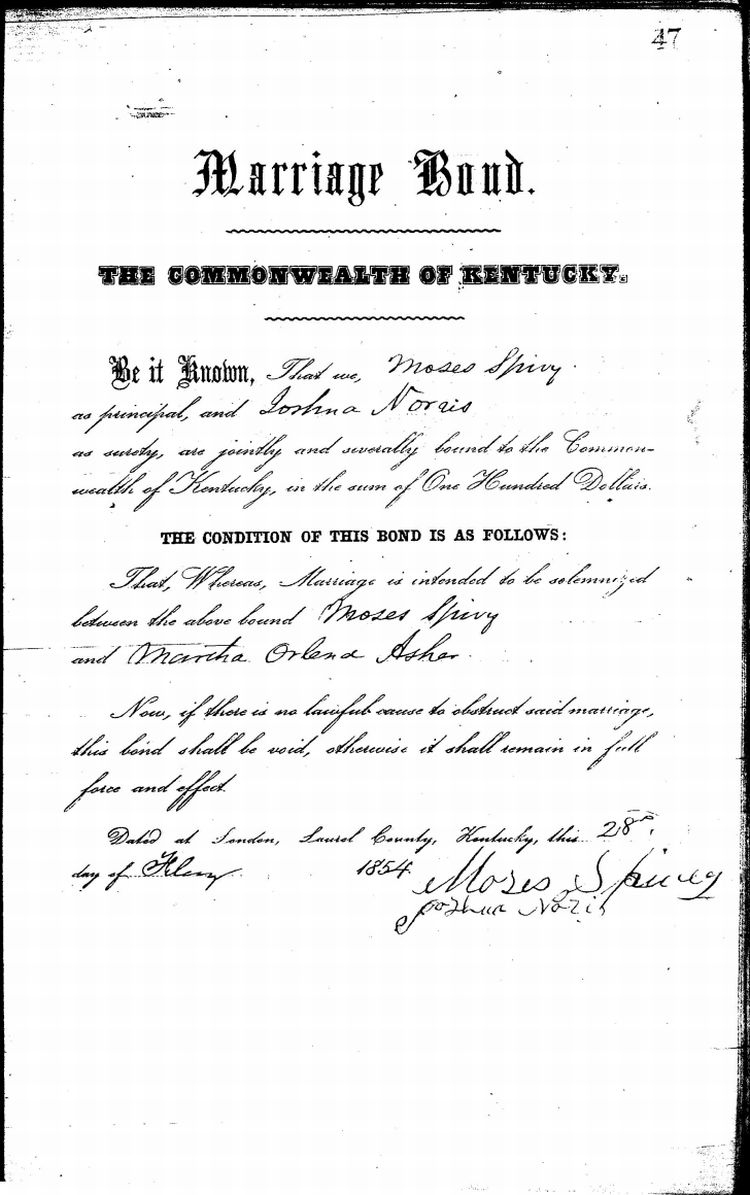 47
Marriage Bond.
THE COMMONWEALTH OF KENTUCKY.
Be it Known, That we, Moses Spivy.
as principal, and Joshua Norris
as surety, are jointly and severally bound to the Common-
wealth of Kentucky, in the sum of One Hundred Dollars.
THE CONDITION OF THIS BOND IS AS FOLLOWS:
That, Whereas, Marriage is intended to be solemnized
between the above bound Moses Spivy
and Martha Orlena Asher.
Now, if there is no lawful cause to obstruct said marriage,
this bond shall be void, otherwise it shall remain in full
force and effect.
Dated at London, Laurel County, Kentucky, this 28
day of 1854
Moses Spivey
Joshua Noris